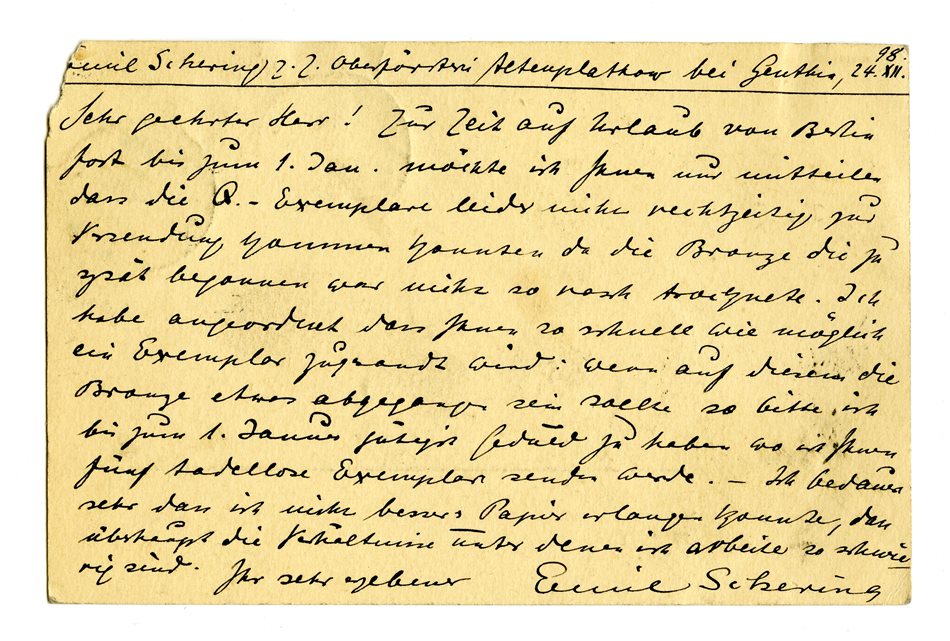 Emil Schering z. Z. Oberförsterei Altenplathow bei Genthin, 24. XII. 98.
Sehr geehrter Herr! Zur Zeit auf Urlaub von Berlin
fort bis zum 1. Jan. möchte ich Ihnen nur mitteilen
dass die Q.-Exemplare leider nicht rechtzeitig zur
Versendung kommen konnten da die Bronze die zu
spät begonnen war nicht so rasch trocknete. Ich
habe angeordnet dass Ihnen so schnell wie möglich
ein Exemplar zugesandt wird: wenn auf diesem die
Bronze etwas abgegangen sein sollte so bitte ich
bis zum 1. Januar gütigst Geduld zu haben wo ich Ihnen
fünf tadellose Exemplare senden werde. – Ich bedauere
sehr dass ich nicht besseres Papier erlangen konnte, dass
überhaupt die Verhältnisse unter denen ich arbeite so schwie
rig sind. Ihr sehr ergebener Emil Schering